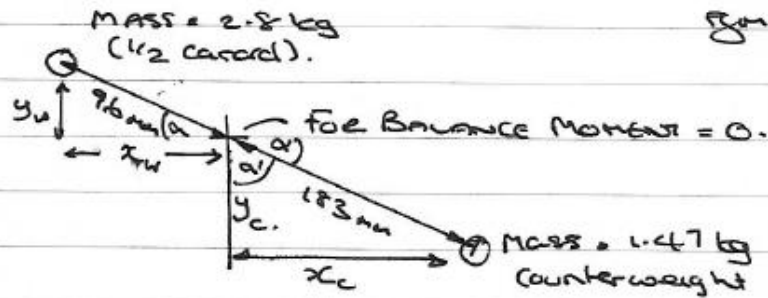 MASS = 2.8 kg
(1/2 canard).
yw
96mm
α
FOR BALANCE MOMENT = 0.
xw
α'
α'
yc.
183mm
MASS = 1.47 kg
counterweight
xc